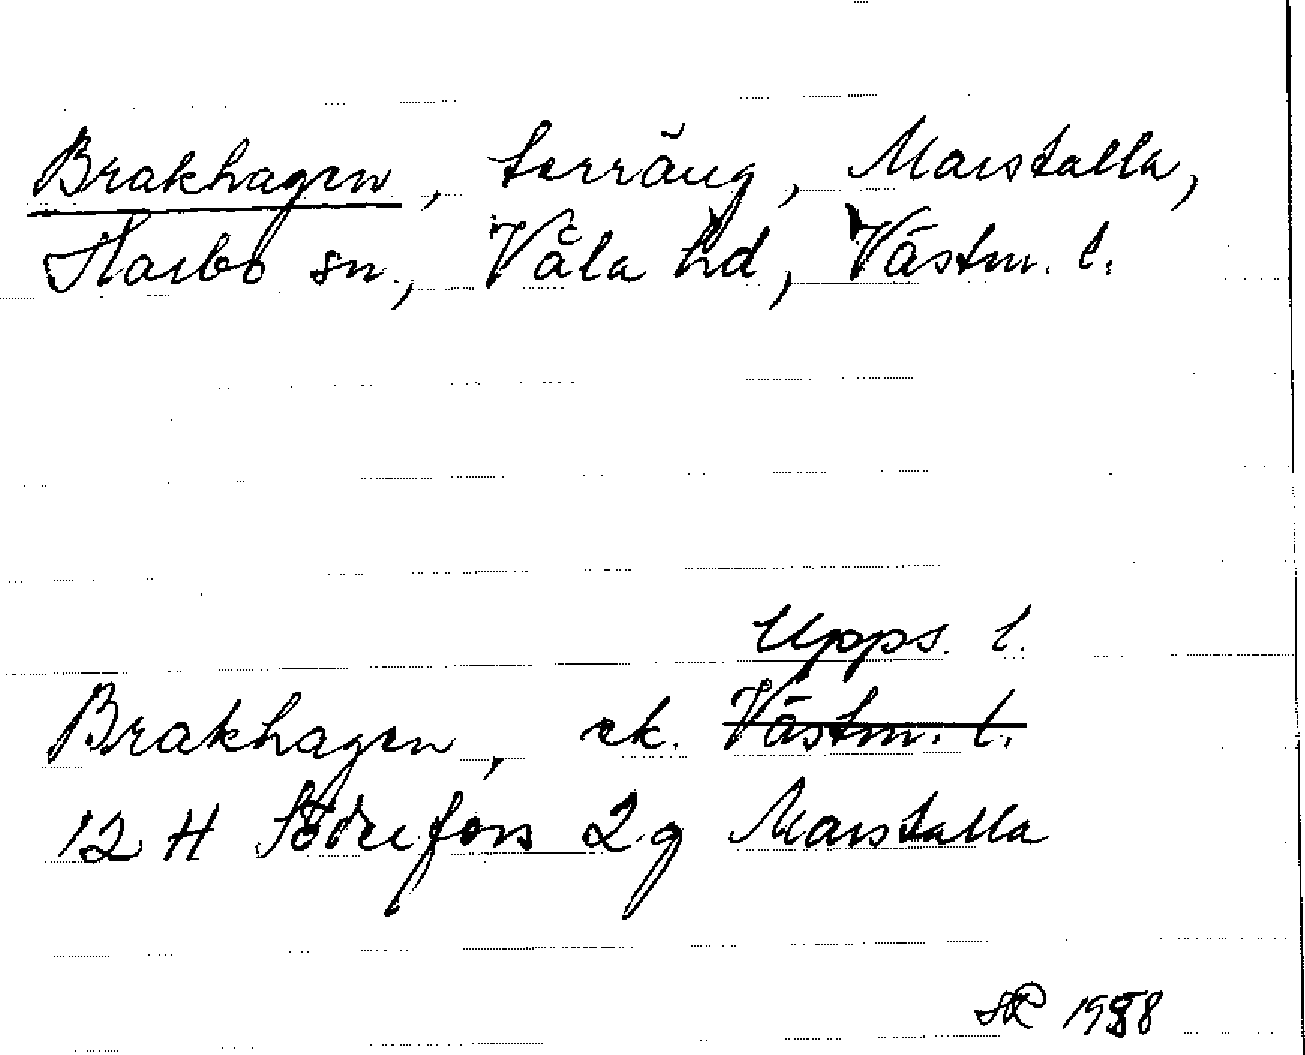 Brakhagen, terräng, Marstalla,
Harbo sn., Våla hd, Västm. l.
Upps. l.
Brakhagen, ek. Västm. l.
12 H Söderfors 2g Marstalla
SR 1988